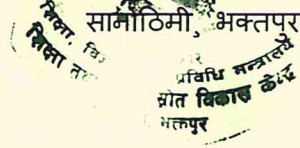 सानोठिमी, भक्तपुर
शिक्षा,
शिक्षा
प्रविधि मन्त्रालय
स्रोत विकास केन्द्र
भक्तपुर